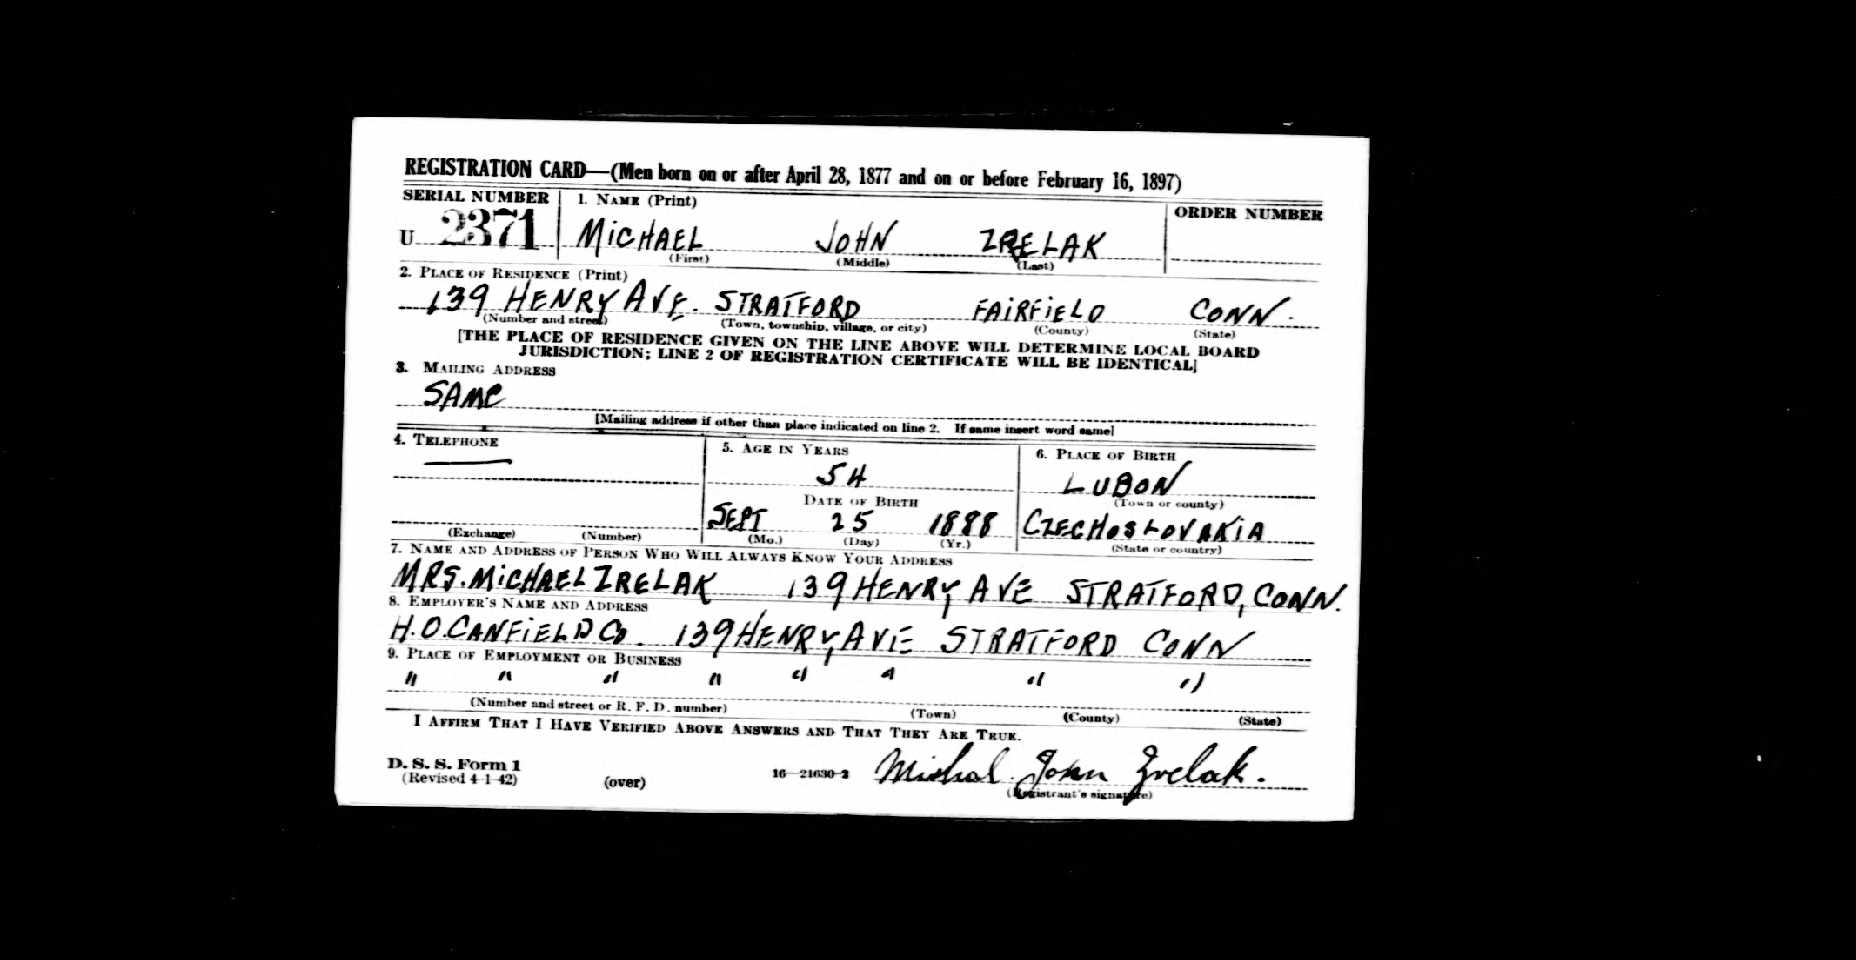 REGISTRATION CARD—(Men born on or after April 28, 1877 and on or before February 16, 1897)
SERIAL NUMBER 1. NAME (Print) ORDER NUMBER
U 2371 MiCHAEL JOHN ZRELAK
(First) (Middle) (Last)
2. PLACE OF RESIDENCE (Print)
139 HENRY AVE. STRATFORD FAiRFiELD CONN.
(Number and street) (Town, township, village, or city) (County) (State)
[THE PLACE OF RESIDENCE GIVEN ON THE LINE ABOVE WILL DETERMINE LOCAL BOARD
JURISDICTION; LINE 2 OF REGISTRATION CERTIFICATE WILL BE IDENTICAL]
3. MAILING ADDRESS
SAME
[Mailing address if other than place indicated on line 2. If same insert word same]
4. TELEPHONE 5. AGE IN YEARS 6. PLACE OF BIRTH
— 54 LUBON
DATE OF BIRTH (Town or county)
SEPT 25 1888 CZECHOSLOVAKiA
(Exchange) (Number) (Mo.) (Day) (Yr.) (State or country)
7. NAME AND ADDRESS OF PERSON WHO WILL ALWAYS KNOW YOUR ADDRESS
MRS. MiCHAEL ZRELAK 139 HENRY AVE STRATFORD, CONN.
8. EMPLOYER'S NAME AND ADDRESS
H.O. CANFiELD Co. 139 HENRY, AVE STRATFORD CONN
9. PLACE OF EMPLOYMENT OR BUSINESS
" " " " " " " "
(Number and street or R. F. D. number) (Town) (County) (State)
I AFFIRM THAT I HAVE VERIFIED ABOVE ANSWERS AND THAT THEY ARE TRUE.
D. S. S. Form 1
(Revised 4-1-42) (over) 16—21630-2 Mishal John Zrelak.
(Registrant's signature)